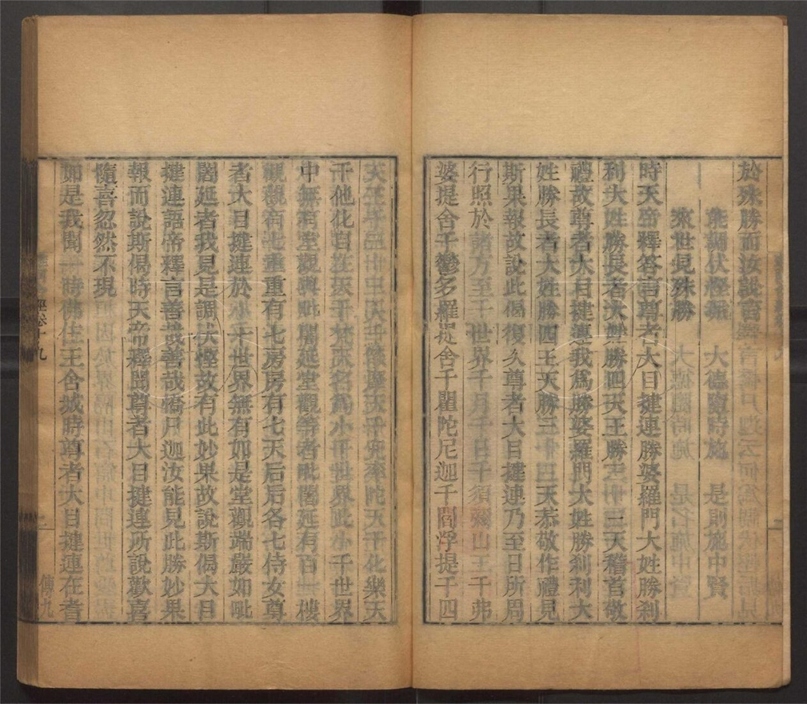 於殊勝而汝說言
能調伏慳垢　大德隨時施　是則施中賢
來世見殊勝　大德隨時施　是名施中賢
時天帝釋答言尊者大目揵連勝婆羅門大姓勝剎
利大姓勝長者大姓勝四天王勝三十三天稽首敬
禮故尊者大目揵連我為勝婆羅門大姓勝剎利大
姓勝長者大姓勝四王天勝三十三天恭敬作禮見
斯果報故說此偈復久尊者大目揵連乃至日所周
行照於諸方至千世界千月千日千須彌山王千弗
婆提舍千鬱多羅提舍千瞿陀尼迦千閻浮提千四
天王千三十三天千焰摩天千兜率陀天千化樂天
千他化自在天千梵天名為小千世界此小千世界
中無有堂觀與毗闍延堂觀等者毗闍延有百一樓
觀觀有七重重有七房房有七天后后各七侍女尊
者大目揵連於小千世界無有如是堂觀端嚴如毗
闍延者我見是調伏慳故有此妙果故說斯偈大目
揵連語帝釋言善哉善哉憍尸迦汝能見此勝妙果
報而說斯偈時天帝釋聞尊者大目揵連所說歡喜
隨喜忽然不現
如是我聞一時佛住王舍城時尊者大目揵連在耆
經卷十九
傳九